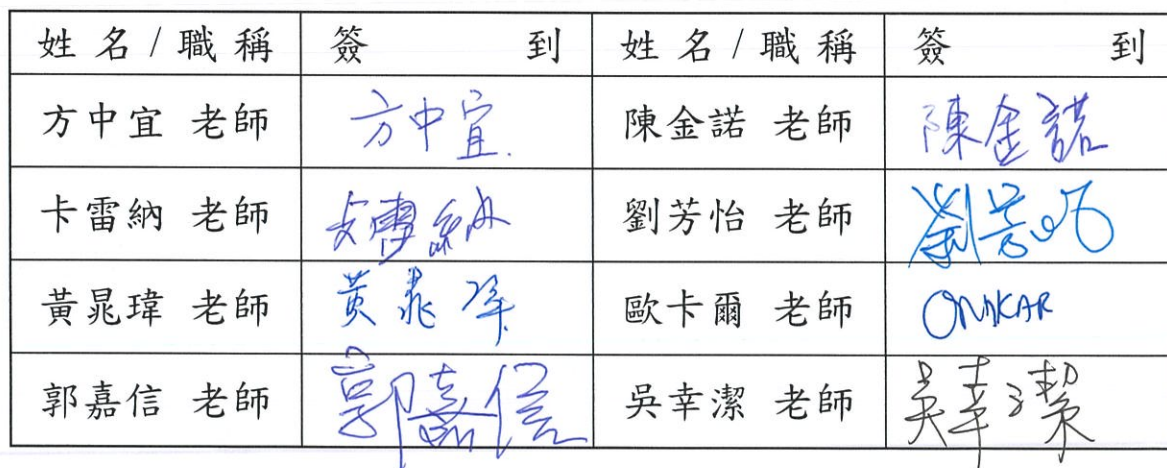 姓名/職稱 簽到 姓名/職稱 簽到
方中宜 老師 方中宜. 陳金諾 老師 陳金諾
卡雷納 老師 卡雷納 劉芳怡 老師 劉芳怡
黃晁瑋 老師 黃晁瑋 歐卡爾 老師 OMKAR
郭嘉信 老師 郭嘉信 吳幸潔 老師 吳幸潔